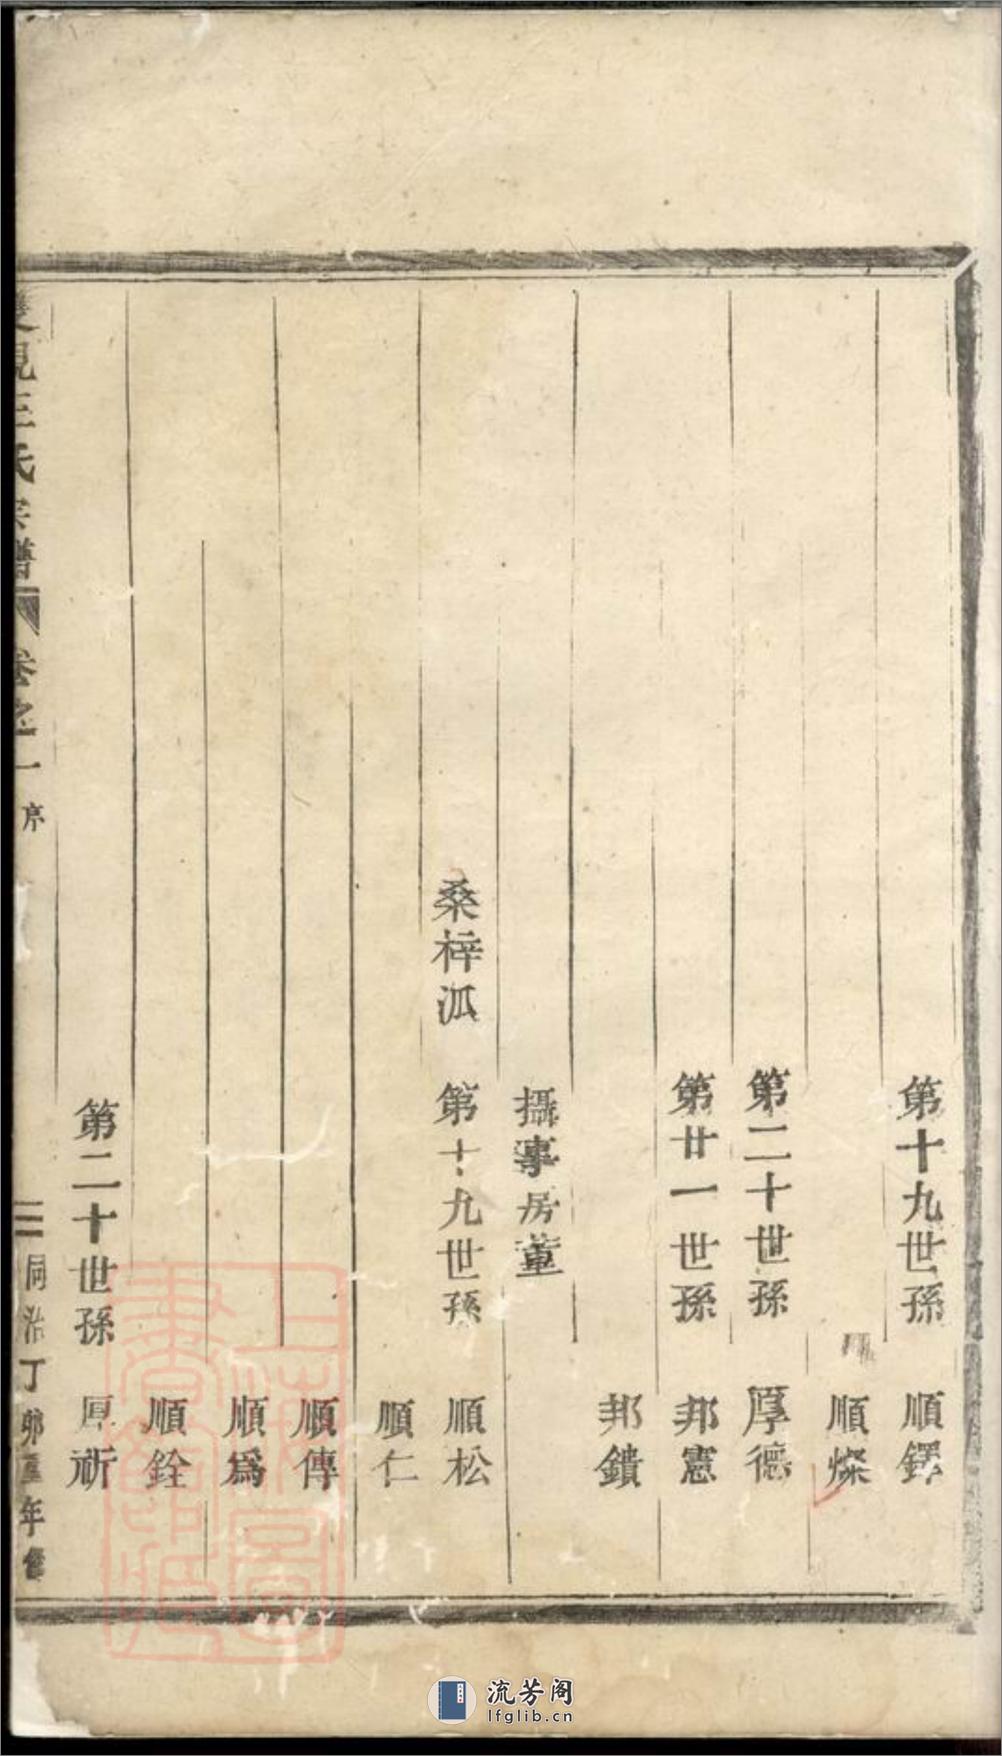 第十九世孫 順鐸
順燦
第二十世孫 厚德
第廿一世孫 邦憲
邦鐀
攝事房董
桑梓泒 第十九世孫 順松
順仁
順傳
順為
順銓
第二十世孫 厚祈
峴王氏宗譜 卷之一 序 同治丁卯重年修
流芳阁
lfglib.cn